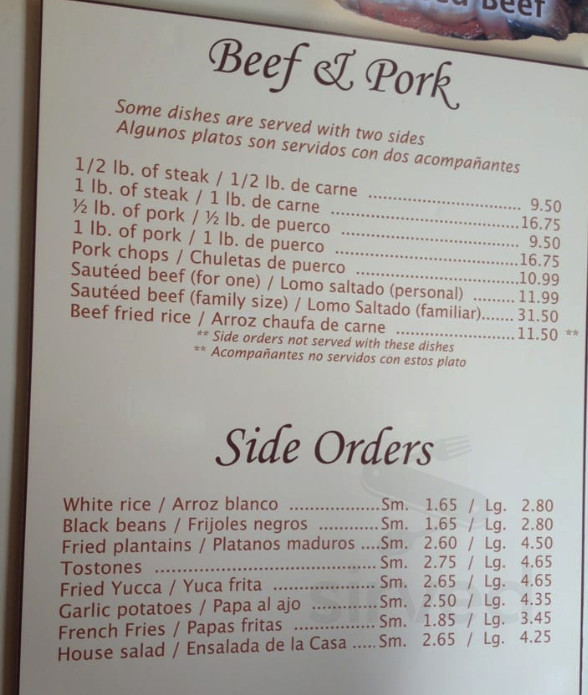 Beef
Beef & Pork
Some dishes are served with two sides
Algunos platos son servidos con dos acompañantes
1/2 lb. of steak / 1/2 lb. de carne ........................... 9.50
1 lb. of steak / 1 lb. de carne ................................. 16.75
½ lb. of pork / ½ lb. de puerco .............................. 9.50
1 lb. of pork / 1 lb. de puerco ................................ 16.75
Pork chops / Chuletas de puerco ............................ 10.99
Sautéed beef (for one) / Lomo saltado (personal) ........ 11.99
Sautéed beef (family size) / Lomo Saltado (familiar)...... 31.50
Beef fried rice / Arroz chaufa de carne .................... 11.50 **
** Side orders not served with these dishes
** Acompañantes no servidos con estos plato
Side Orders
White rice / Arroz blanco .................. Sm. 1.65 / Lg. 2.80
Black beans / Frijoles negros ............ Sm. 1.65 / Lg. 2.80
Fried plantains / Platanos maduros .... Sm. 2.60 / Lg. 4.50
Tostones ....................................... Sm. 2.75 / Lg. 4.65
Fried Yucca / Yuca frita .................... Sm. 2.65 / Lg. 4.65
Garlic potatoes / Papa al ajo ............. Sm. 2.50 / Lg. 4.35
French Fries / Papas fritas ................ Sm. 1.85 / Lg. 3.45
House salad / Ensalada de la Casa ..... Sm. 2.65 / Lg. 4.25